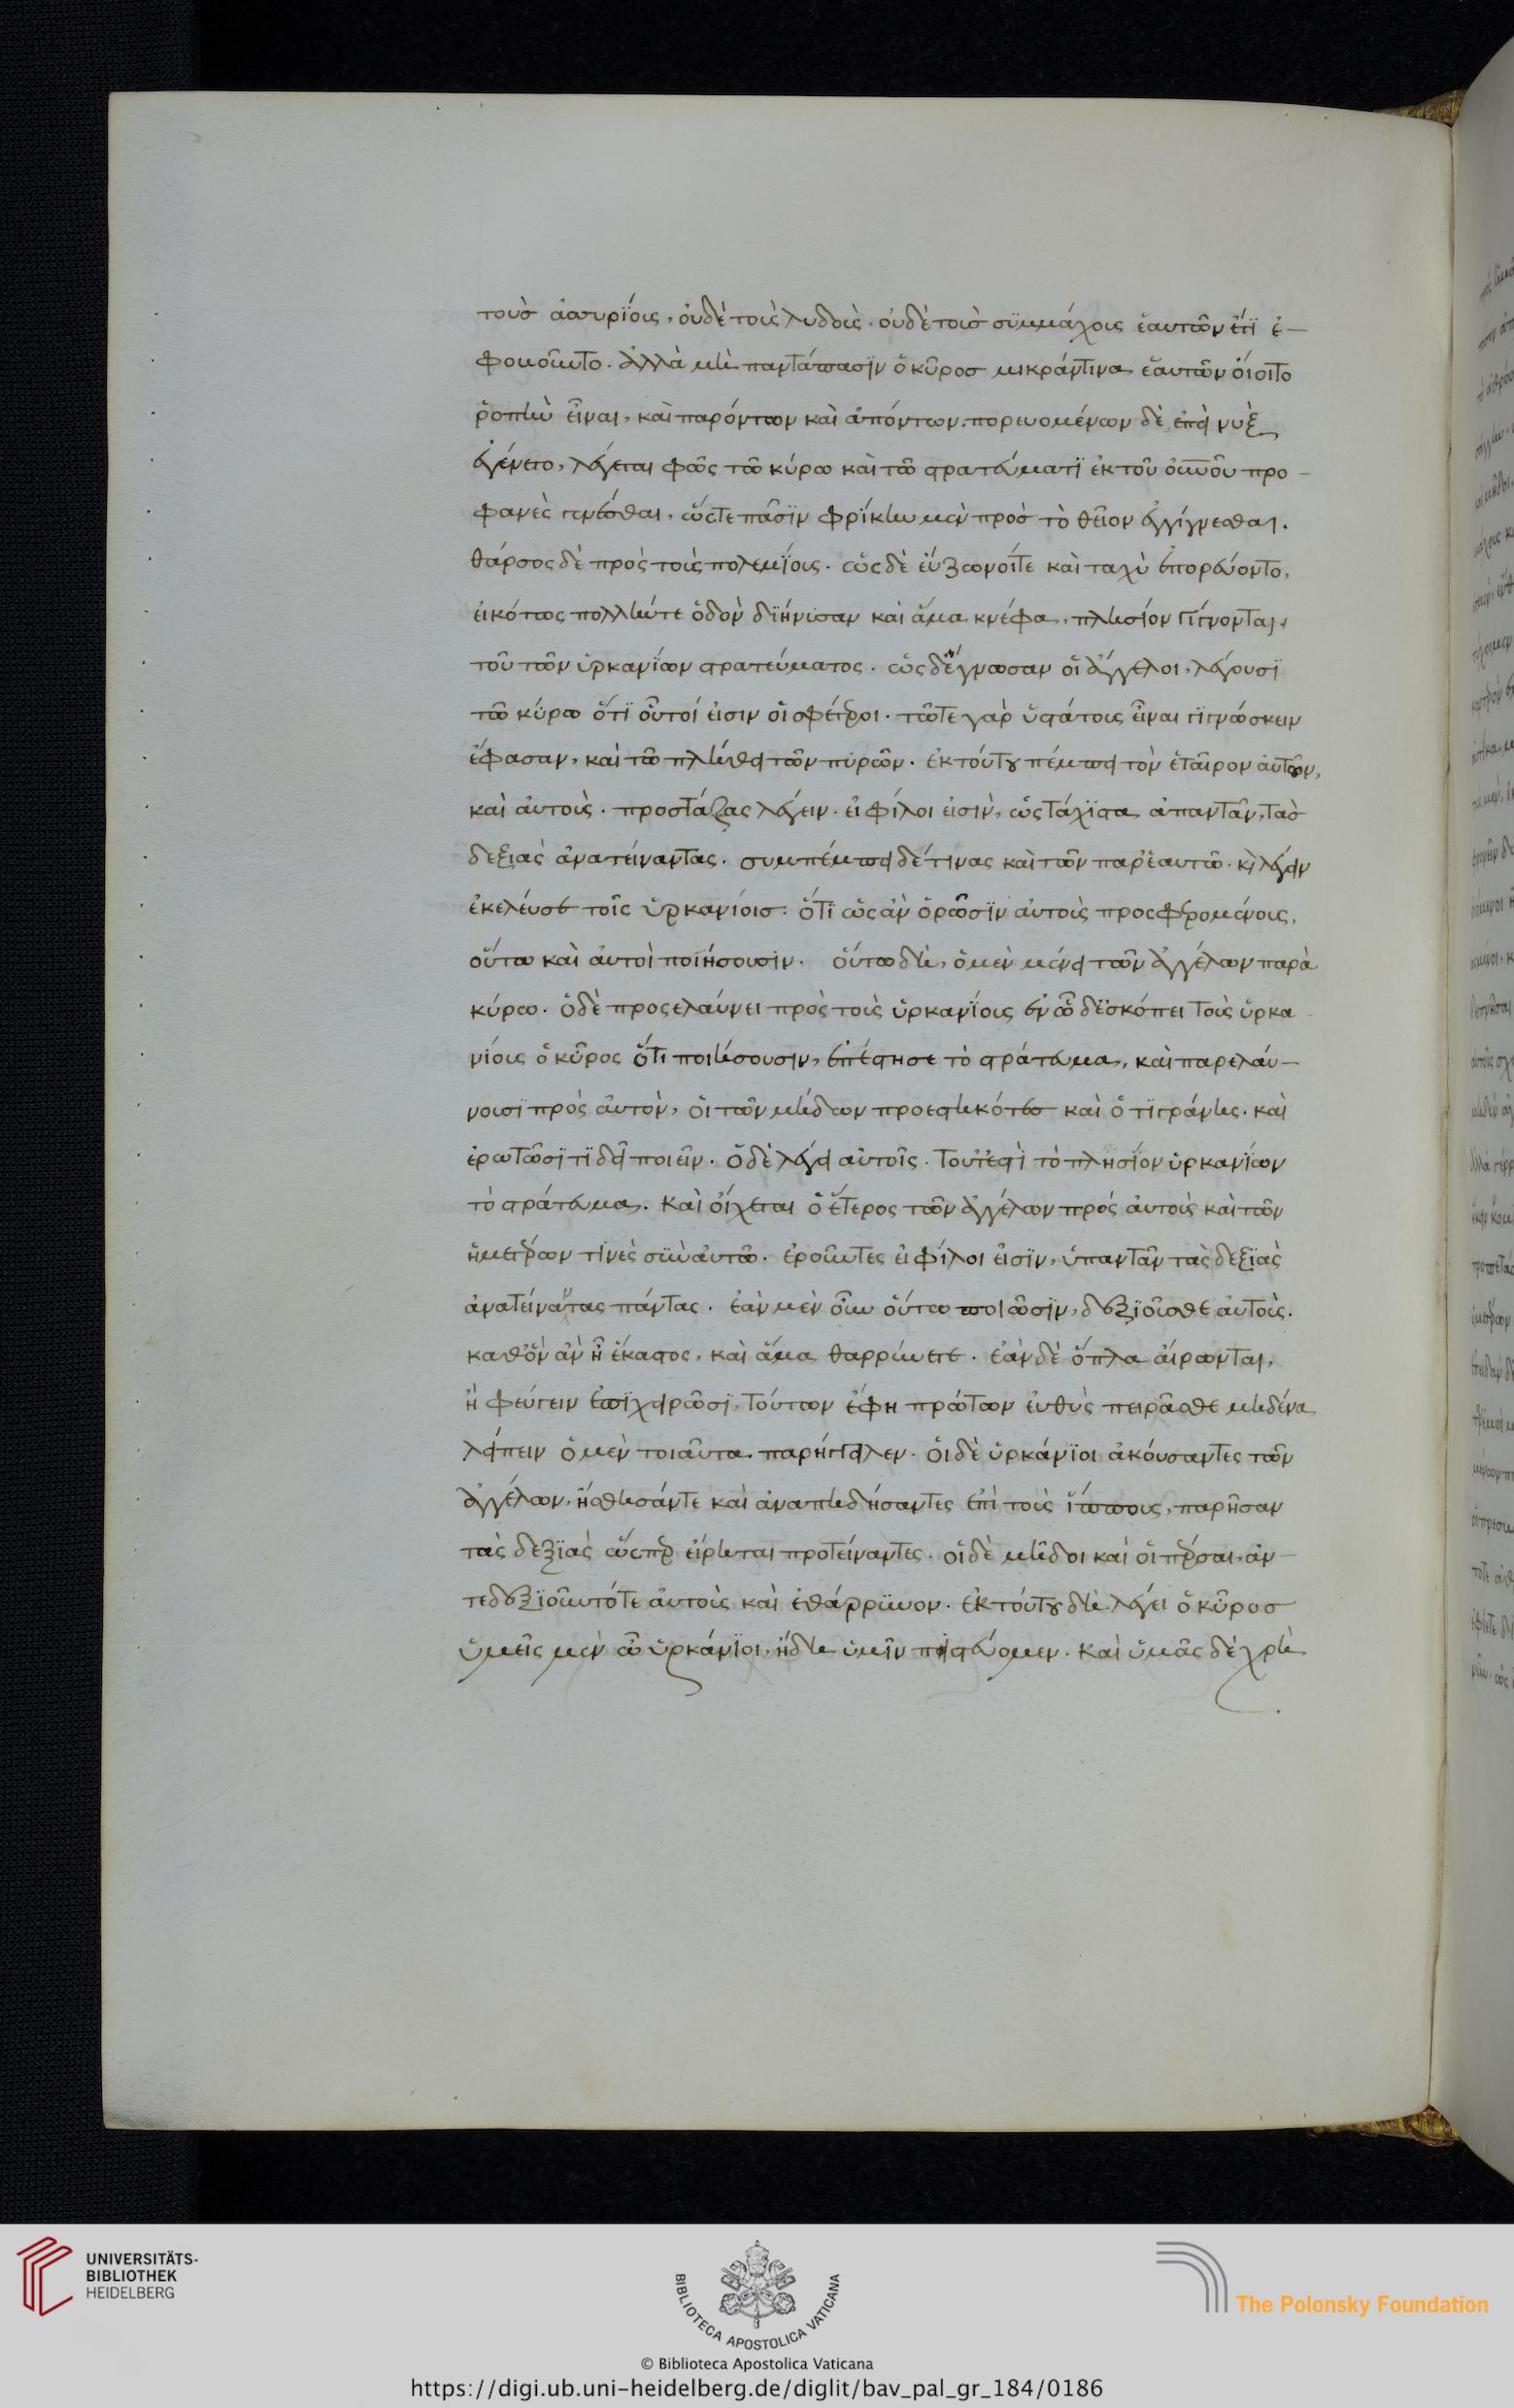 τοὺσ ἀσυρΐοις, ὀυδὲ τοὺς λυδοὺς. ὀυδὲ τοὺσ σϋμμάχους ἑαυτῶν ἐτϊ ἐ-
φοβοῦντο. ἀλλὰ μὴ παντάπασϊν ὁ κῦροσ μικράν τινα ἑαυτῶν ὀίοιτο
ῥοπὴν εἶναι, καὶ παρόντων καὶ ἀπόντων. πορευομένων δὲ ἐπεὶ νυξ
ἐγένετο, λέγεται φῶς τῶ κύρω καὶ τῶ στρατεύματϊ ἐκ τοῦ οὐνοῦ προ-
φανὲς γενέσθαι, ὥστε πᾶσϊν φρίκην μὲν πρὸσ τὸ θεῖον ἐγγίγνεσθαι.
θάρσος δὲ πρὸς τοὺς πολεμΐους. ὡς δὲ ἐύζωνοίτε καὶ ταχὺ ἐπορεύοντο,
εἰκότως πολλήντε ὁδὸν διήνισαν καὶ ἅμα κνέφα, πλησίον γίγνονται,
τοῦ τῶν ὑρκανΐων στρατεύματος. ὡς δ' ἔγνωσαν οἱ ἄγγελοι, λέγουσϊ
τῶ κύρω ὅτϊ οὗτοί εἰσιν οἱ σφέτεροι. τῶτε γὰρ ὑστάτους εἶναι γϊγνώσκειν
ἔφασαν, καὶ τῶ πλήθει τῶν πυρῶν. ἐκ τούτου πέμπει τὸν ἑταῖρον ἀυτῶν,
καὶ ἀυτοὺς. προστάξας λέγειν. εἰ φίλοι εἰσὶν, ὡς τάχϊστα ἀπαντᾶν, τὰσ
δεξιὰς ἀνατείναντας. συμπέμπει δέ τινας καὶ τῶν παρ' ἑαυτῶ. κὶ λέγειν
ἐκελέυσε τοῖς ὑρκανίοισ: ὅτϊ ὡς ἀν ὁρῶσϊν ἀυτοὺς προσφερομένους,
οὕτω καὶ ἀυτοὶ ποιήσουσιν. οὕτω δὴ, ὁ μὲν μένει τῶν ἀγγέλων παρὰ
κύρω. ὁ δὲ προσελαύνει πρὸς τοὺς ὑρκανΐους ἐν ὧ δ' ἐσκόπει τοὺς ὑρκα
νίους ὁ κῦρος ὅτι ποιήσουσιν, ἐπέστησε τὸ στράτευμα, καὶ παρελάυ-
νουσϊ πρὸς ἀυτὸν, οἱ τῶν μήδων προεστηκότες καὶ ὁ τϊγράνης. καὶ
ἐρωτῶσϊ τϊ δεῖ ποιεῖν. ὁ δὲ λέγει αὐτοῖς. τοῦτ' ἐστὶ τὸ πλησίον ὑρκανΐων
τὸ στράτευμα. καὶ ὀίχεται ὁ ἕτερος τῶν ἀγγέλων πρὸς ἀυτοὺς καὶ τῶν
ἡμετέρων τϊνὲς σὺν ἀυτῶ. ἐροῦντες εἰ φίλοι εἰσϊν, ὑπαντᾶν τὰς δεξϊὰς
ἀνατείναντας πάντας. ἐὰν μὲν οὖν οὕτω ποιῶσϊν, δεξϊοῦσθε ἀυτοὺς.
καθ' ὃν ἀν ἦ ἕκαστος, καὶ ἅμα θαρρύνετε. ἐὰν δὲ ὅπλα ἀίρωνται,
ἢ φεύγειν ἐπϊχειρῶσϊ, τούτων ἔφη πρώτων ἐυθὺς πειρᾶσθε μηδένα
λείπειν ὁ μὲν τοιαῦτα παρήγγειλεν. ὁι δὲ ὑρκάνϊοι ἀκόυσαντες τῶν
ἀγγέλων, ἥσθησάντε καὶ ἀναπηδήσαντες ἐπὶ τοὺς ἵππους, παρῆσαν
τὰς δεξϊὰς ὥσπερ εἴρηται προτείναντες. οἱ δὲ μῆδοι καὶ ὁι πέρσαι, ἀν-
τεδεξϊοῦντότε ἀυτοὺς καὶ ἐθάρρϋνον. ἐκ τούτου δὴ λέγει ὁ κῦροσ
ὑμεῖς μὲν ὦ ὑρκάνϊοι, ἤδη ὑμῖν πιστεύομεν. καὶ ὑμᾶς δὲ χρὴ
UNIVERSITÄTS-
BIBLIOTHEK
HEIDELBERG
BIBLIOTECA APOSTOLICA VATICANA
The Polonsky Foundation
© Biblioteca Apostolica Vaticana
https://digi.ub.uni-heidelberg.de/diglit/bav_pal_gr_184/0186